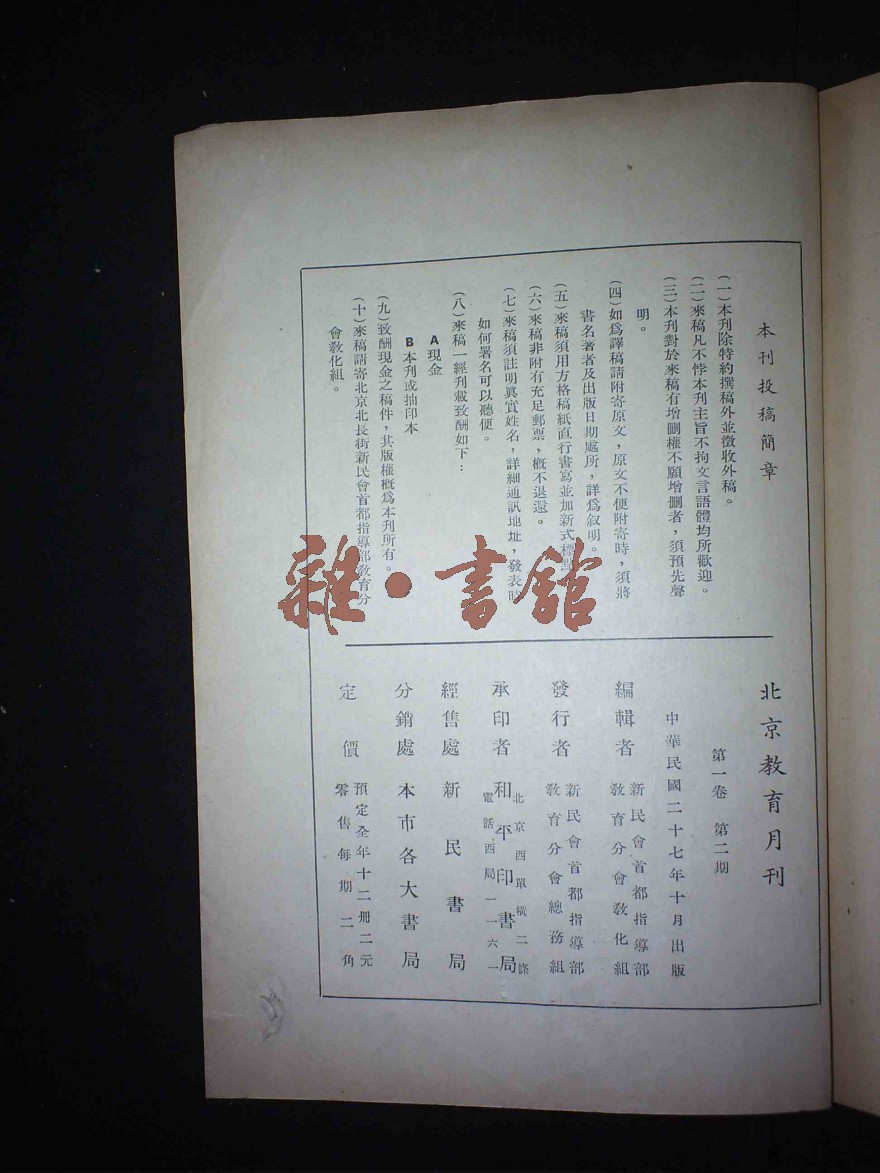 本刊投稿簡章
(一)本刊除特約撰稿外並徵收外稿。
(二)來稿凡不悖本刊主旨不拘文言語體均所歡迎。
(三)本刊對於來稿有增删權不願增删者，須預先聲
明。
(四)如爲譯稿請附寄原文，原文不便附寄時，須將
書名著者及出版日期處所，詳爲叙明。
(五)來稿須用方格稿紙直行書寫並加新式標點
(六)來稿非附有充足郵票，槪不退還。
(七)來稿須註明眞實姓名，詳細通訊地址，發表時
如何署名可以聽便。
(八)來稿一經刋載致酬如下：
A現金
B本刊或抽印本
(九)致酬現金之稿件，其版權槪爲本刊所有。
(十)來稿請寄北京北長街新民會首都指導部敎育分
會敎化組。
北京教育月刊
第一卷 第二期
中華民國二十七年十月出版
編輯者 新民會首都指導部
敎育分會敎化組
發行者 新民會首都指導部
敎育分會總務組
承印者 和平印書局
北京西單橫二條
電話西局一一六一
經售處 新民書局
分銷處 本市各大書局
定價 預定全年十二冊二元
零售每期二角
雜·書館